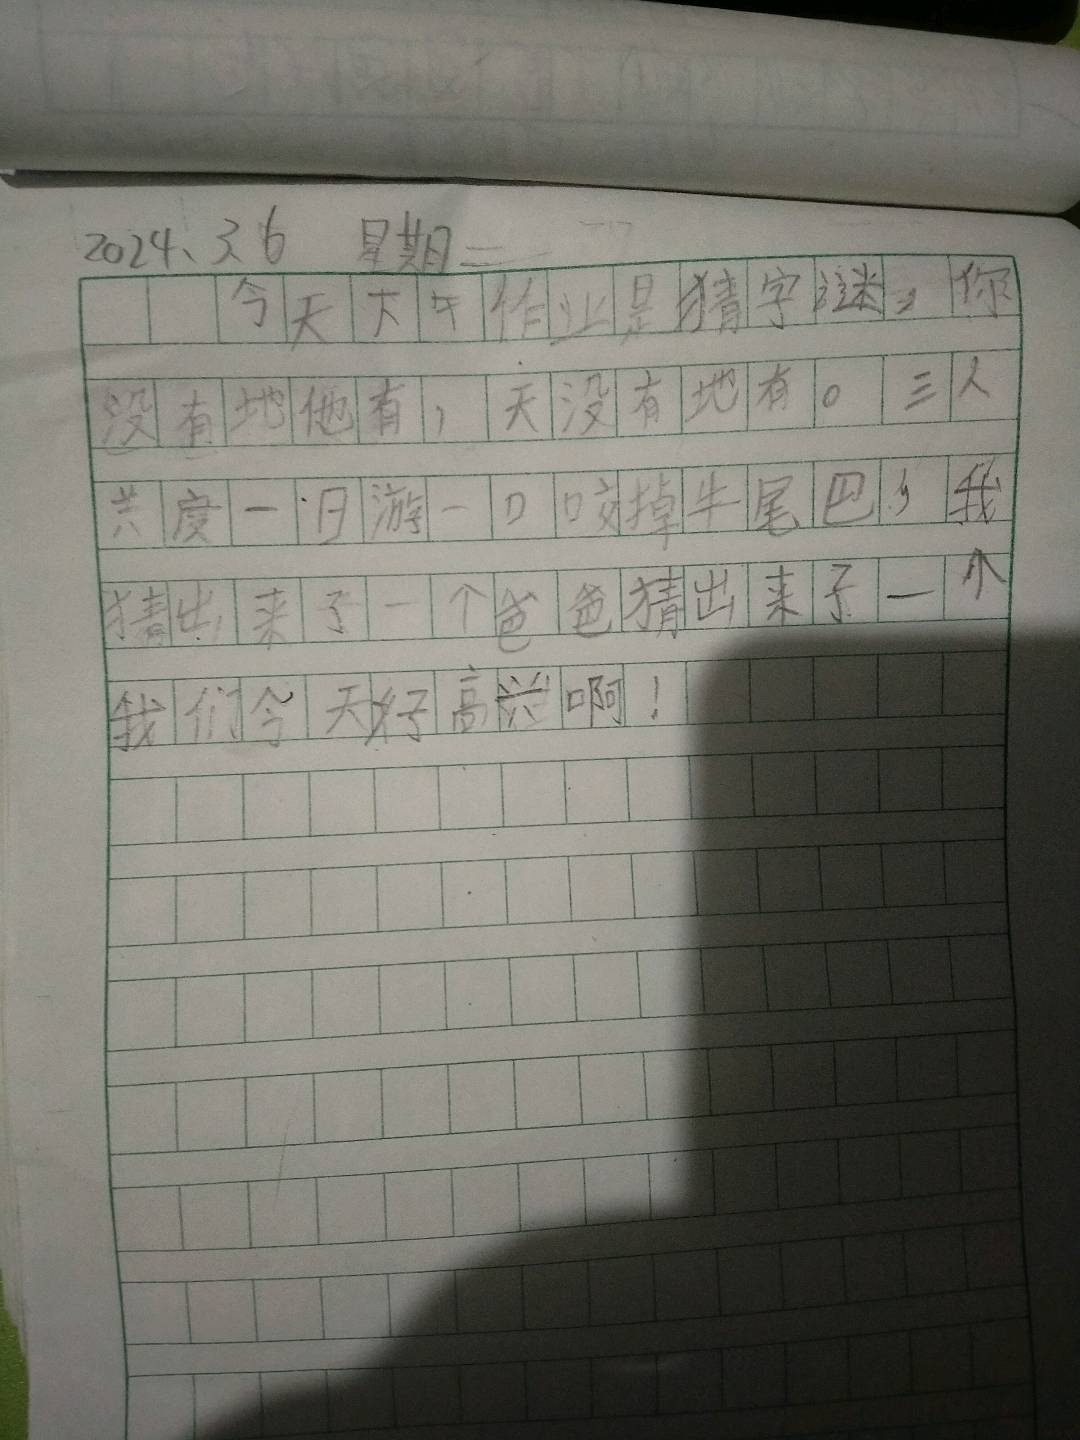 2024、3、6 星期二
今天下午作业是猜字谜，你
没有地他有，天没有地有。三人
共度一日游一口咬掉牛尾巴，我
猜出来了一个爸爸猜出来了一个
我们今天好高兴啊！